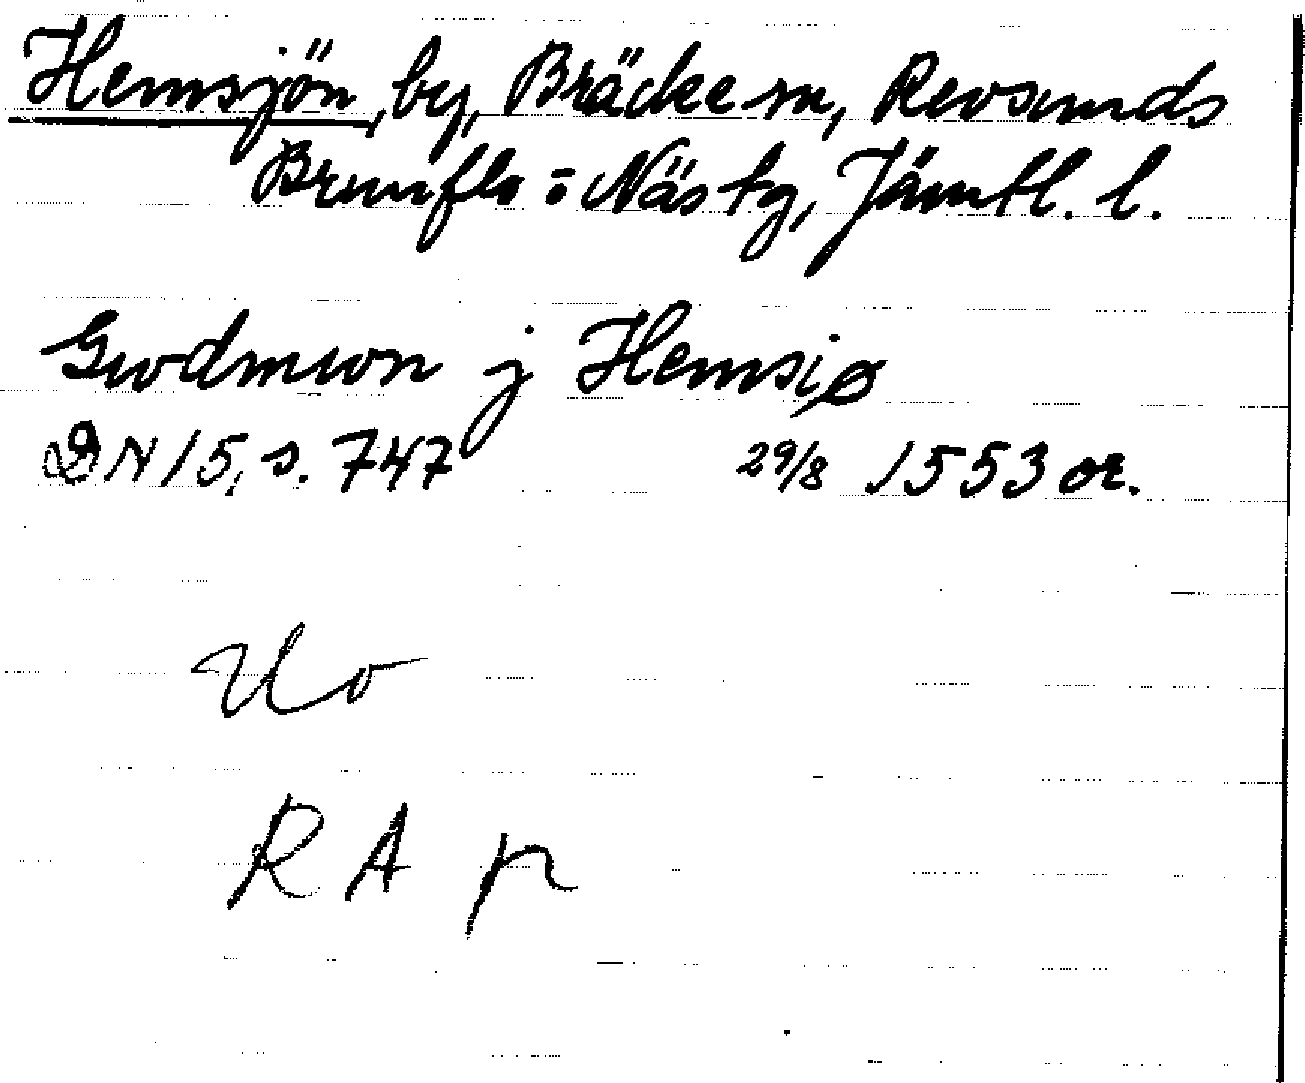 Hemsjön, by, Bräcke sn, Revsunds
Brunflo o Näs tg, Jämtl. l.
Gwdmwn j Hemsiø
DN 15, s. 747 29/8 1553 or.
Uo
RA p